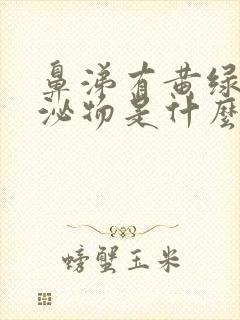 鼻涕有黄绿
泌物是什麼
螃蟹玉米